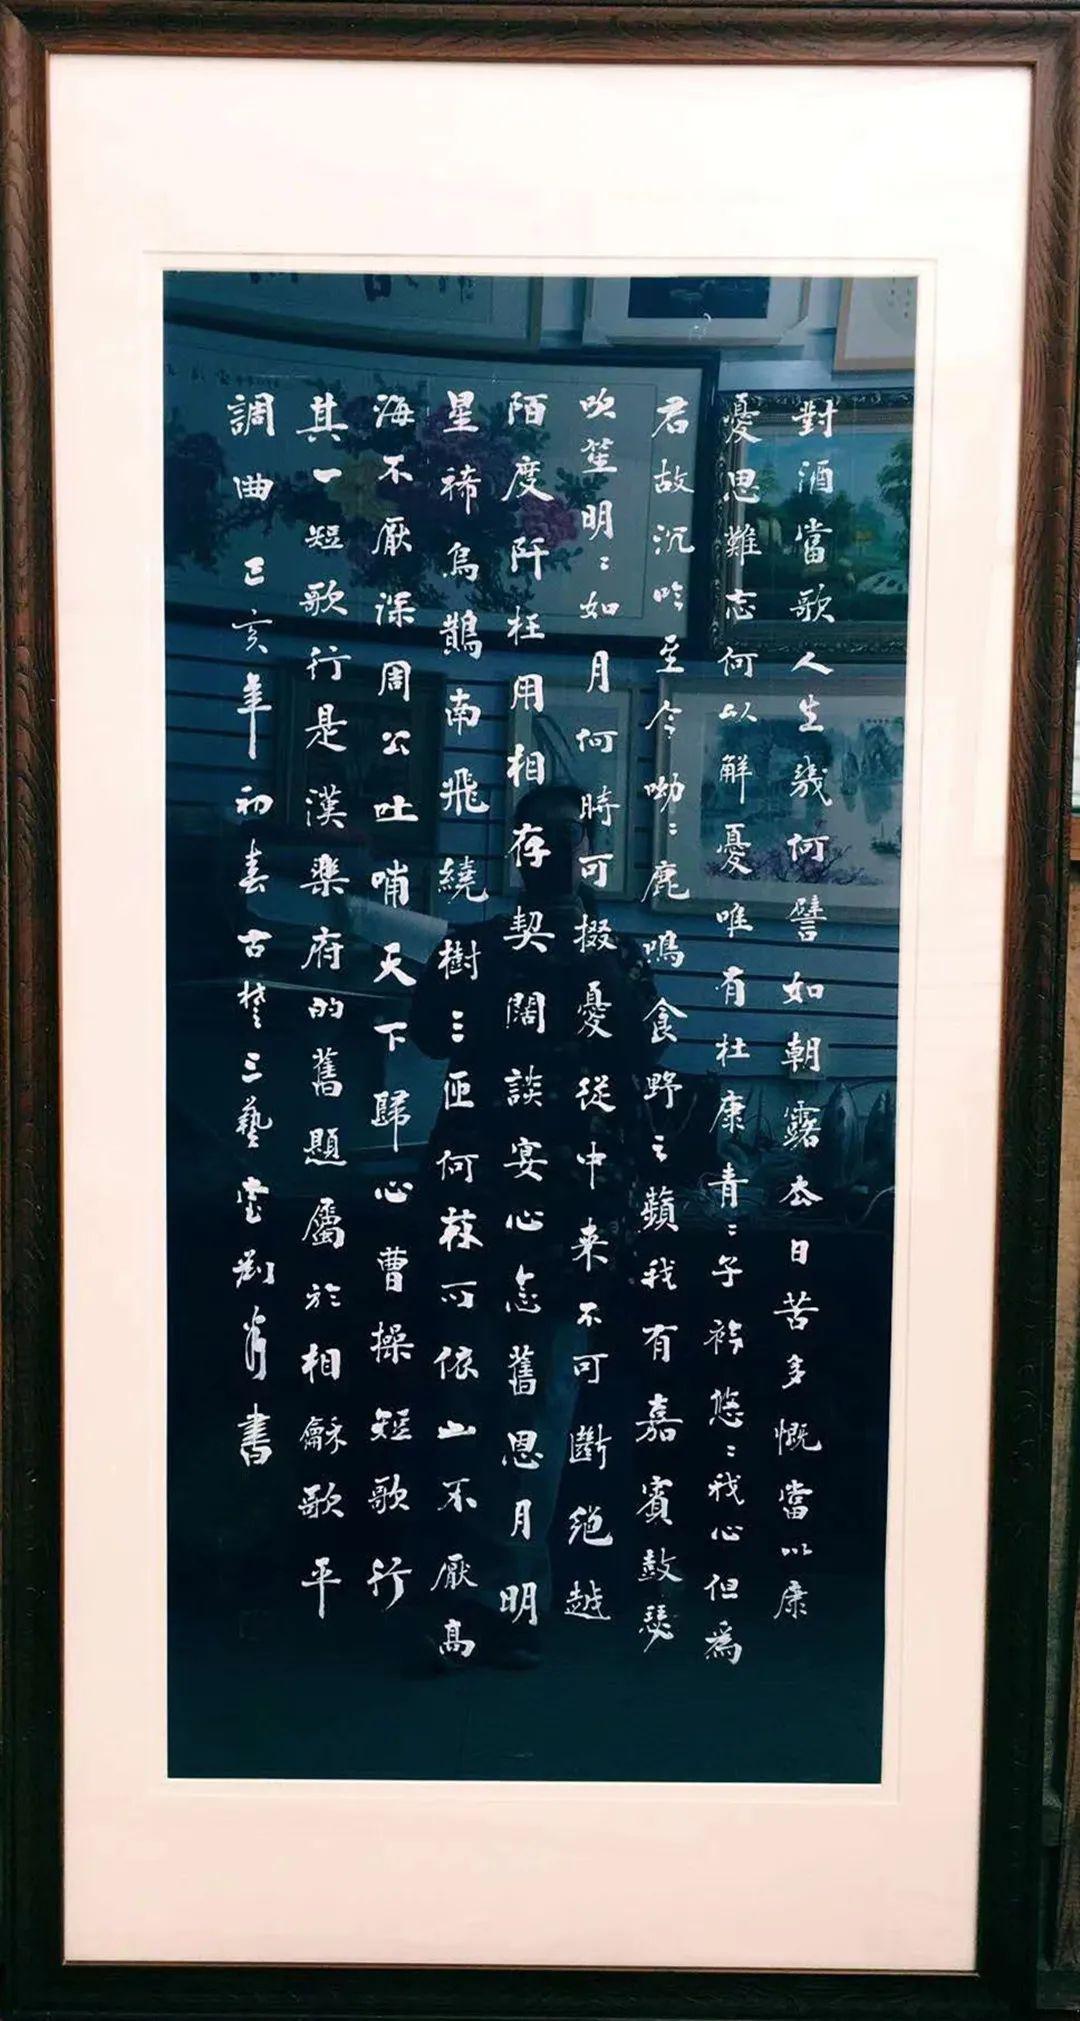 對酒當歌人生幾何譬如朝露去日苦多慨當以康
憂思難忘何以解憂唯有杜康青〻子衿悠〻我心但為
君故沉吟至今呦〻鹿鳴食野之蘋我有嘉賓鼓瑟
吹笙明〻如月何時可掇憂從中来不可斷絕越
陌度阡枉用相存契闊談宴心念舊恩月明
星稀烏鵲南飛繞樹三匝何枝可依山不厭高
海不厭深周公吐哺天下歸心曹操短歌行
其一短歌行是漢樂府的舊題屬於相龢歌平
調曲己亥年初春古楚三藝堂劉書